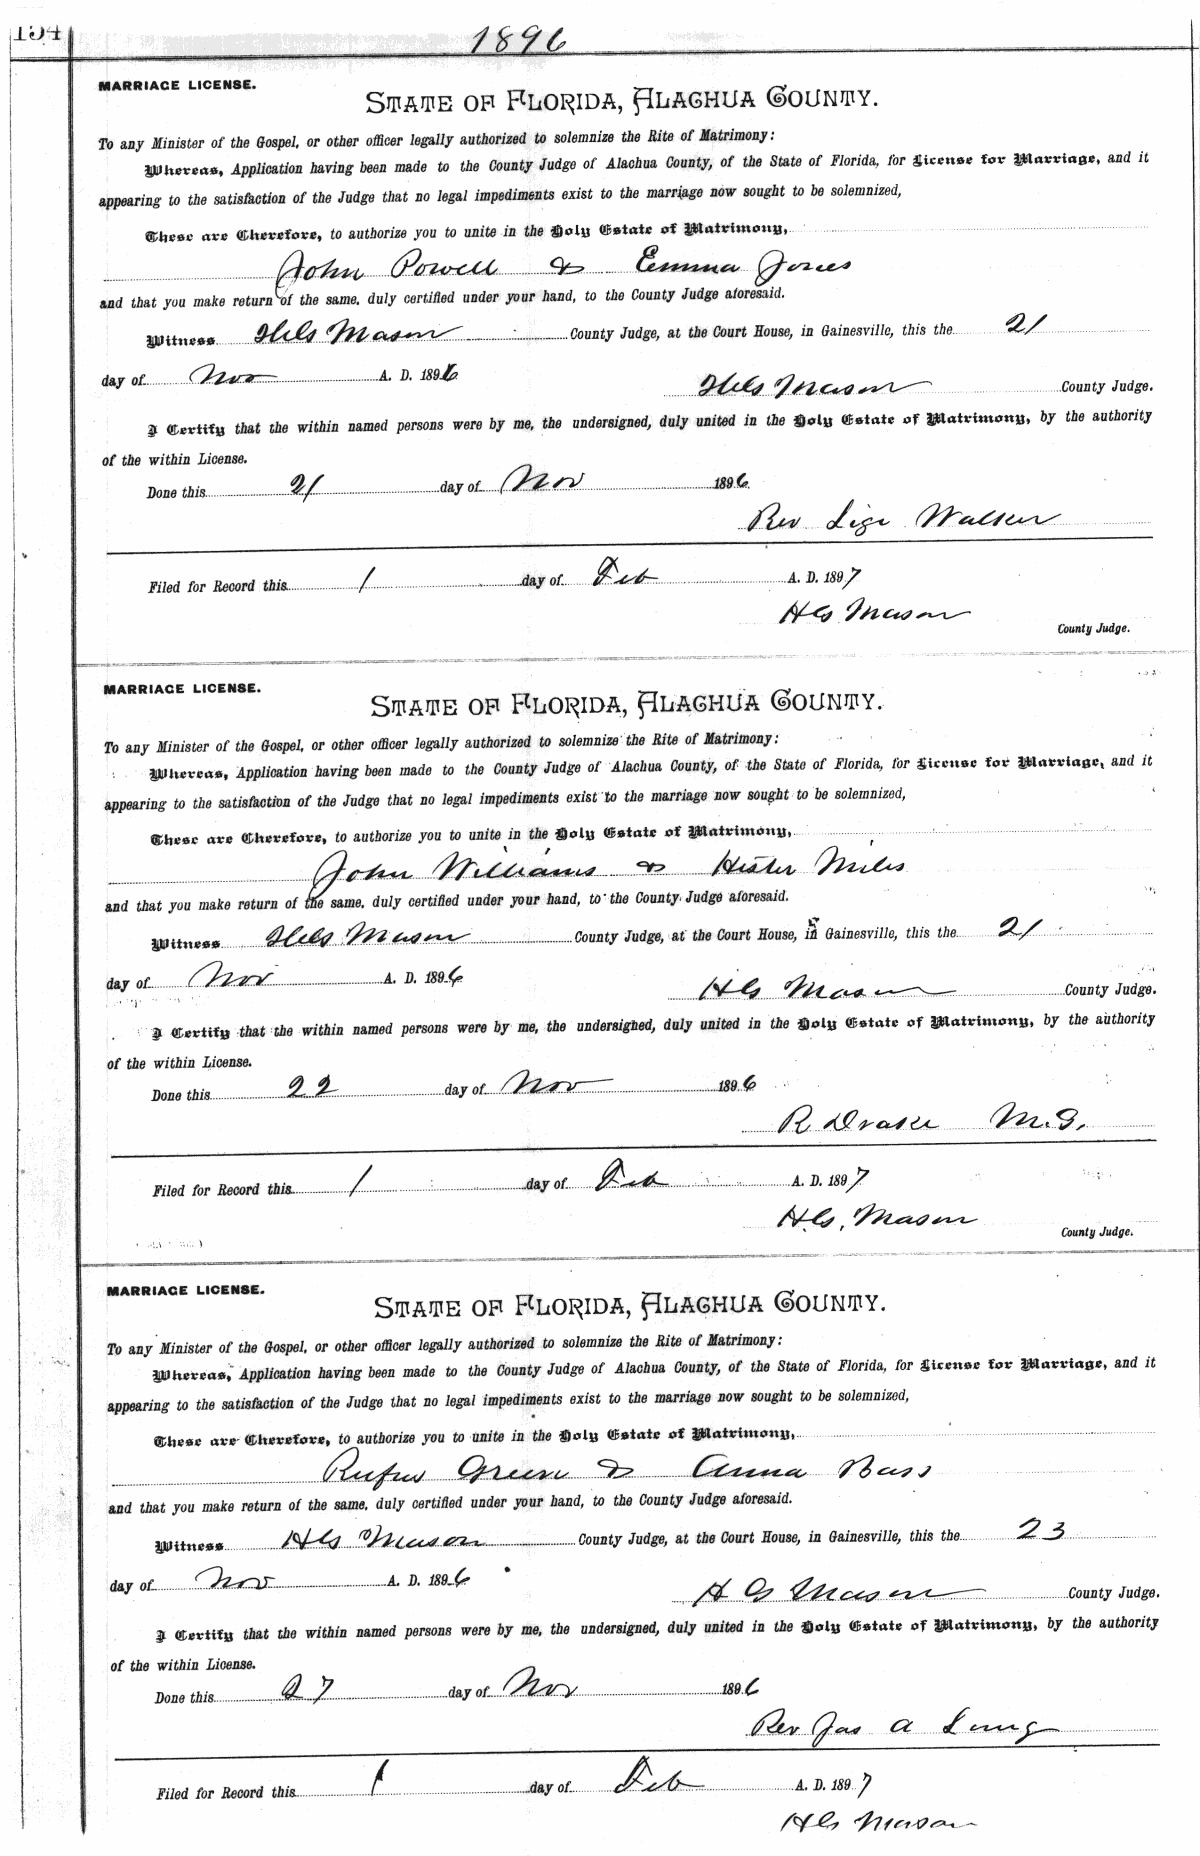 154
1896
MARRIAGE LICENSE.
STATE OF FLORIDA, ALACHUA COUNTY.
To any Minister of the Gospel, or other officer legally authorized to solemnize the Rite of Matrimony:
Whereas, Application having been made to the County Judge of Alachua County, of the State of Florida, for License for Marriage, and it
appearing to the satisfaction of the Judge that no legal impediments exist to the marriage now sought to be solemnized,
These are Therefore, to authorize you to unite in the Holy Estate of Matrimony,
John Powell & Emma Jones
and that you make return of the same, duly certified under your hand, to the County Judge aforesaid.
Witness Mason County Judge, at the Court House, in Gainesville, this the 21
day of Nov A. D. 1896
Mason County Judge.
I Certify that the within named persons were by me, the undersigned, duly united in the Holy Estate of Matrimony, by the authority
of the within License.
Done this 21 day of Nov 1896
Rev Lige Walker
Filed for Record this 1 day of Feb A. D. 1897
Mason
County Judge.
MARRIAGE LICENSE.
STATE OF FLORIDA, ALACHUA COUNTY.
To any Minister of the Gospel, or other officer legally authorized to solemnize the Rite of Matrimony:
Whereas, Application having been made to the County Judge of Alachua County, of the State of Florida, for License for Marriage, and it
appearing to the satisfaction of the Judge that no legal impediments exist to the marriage now sought to be solemnized,
These are Therefore, to authorize you to unite in the Holy Estate of Matrimony,
John Williams & Hister Miles
and that you make return of the same, duly certified under your hand, to the County Judge aforesaid.
Witness Mason County Judge, at the Court House, in Gainesville, this the 21
day of Nov A. D. 1896
Mason County Judge.
I Certify that the within named persons were by me, the undersigned, duly united in the Holy Estate of Matrimony, by the authority
of the within License.
Done this 22 day of Nov 1896
R Drake M.G.
Filed for Record this 1 day of Feb A. D. 1897
Mason
County Judge.
MARRIAGE LICENSE.
STATE OF FLORIDA, ALACHUA COUNTY.
To any Minister of the Gospel, or other officer legally authorized to solemnize the Rite of Matrimony:
Whereas, Application having been made to the County Judge of Alachua County, of the State of Florida, for License for Marriage, and it
appearing to the satisfaction of the Judge that no legal impediments exist to the marriage now sought to be solemnized,
These are Therefore, to authorize you to unite in the Holy Estate of Matrimony,
Rufus Green & Anna Bass
and that you make return of the same, duly certified under your hand, to the County Judge aforesaid.
Witness Mason County Judge, at the Court House, in Gainesville, this the 23
day of Nov A. D. 1896
Mason County Judge.
I Certify that the within named persons were by me, the undersigned, duly united in the Holy Estate of Matrimony, by the authority
of the within License.
Done this 27 day of Nov 1896
Rev Jas A Long
Filed for Record this 1 day of Feb A. D. 1897
Mason